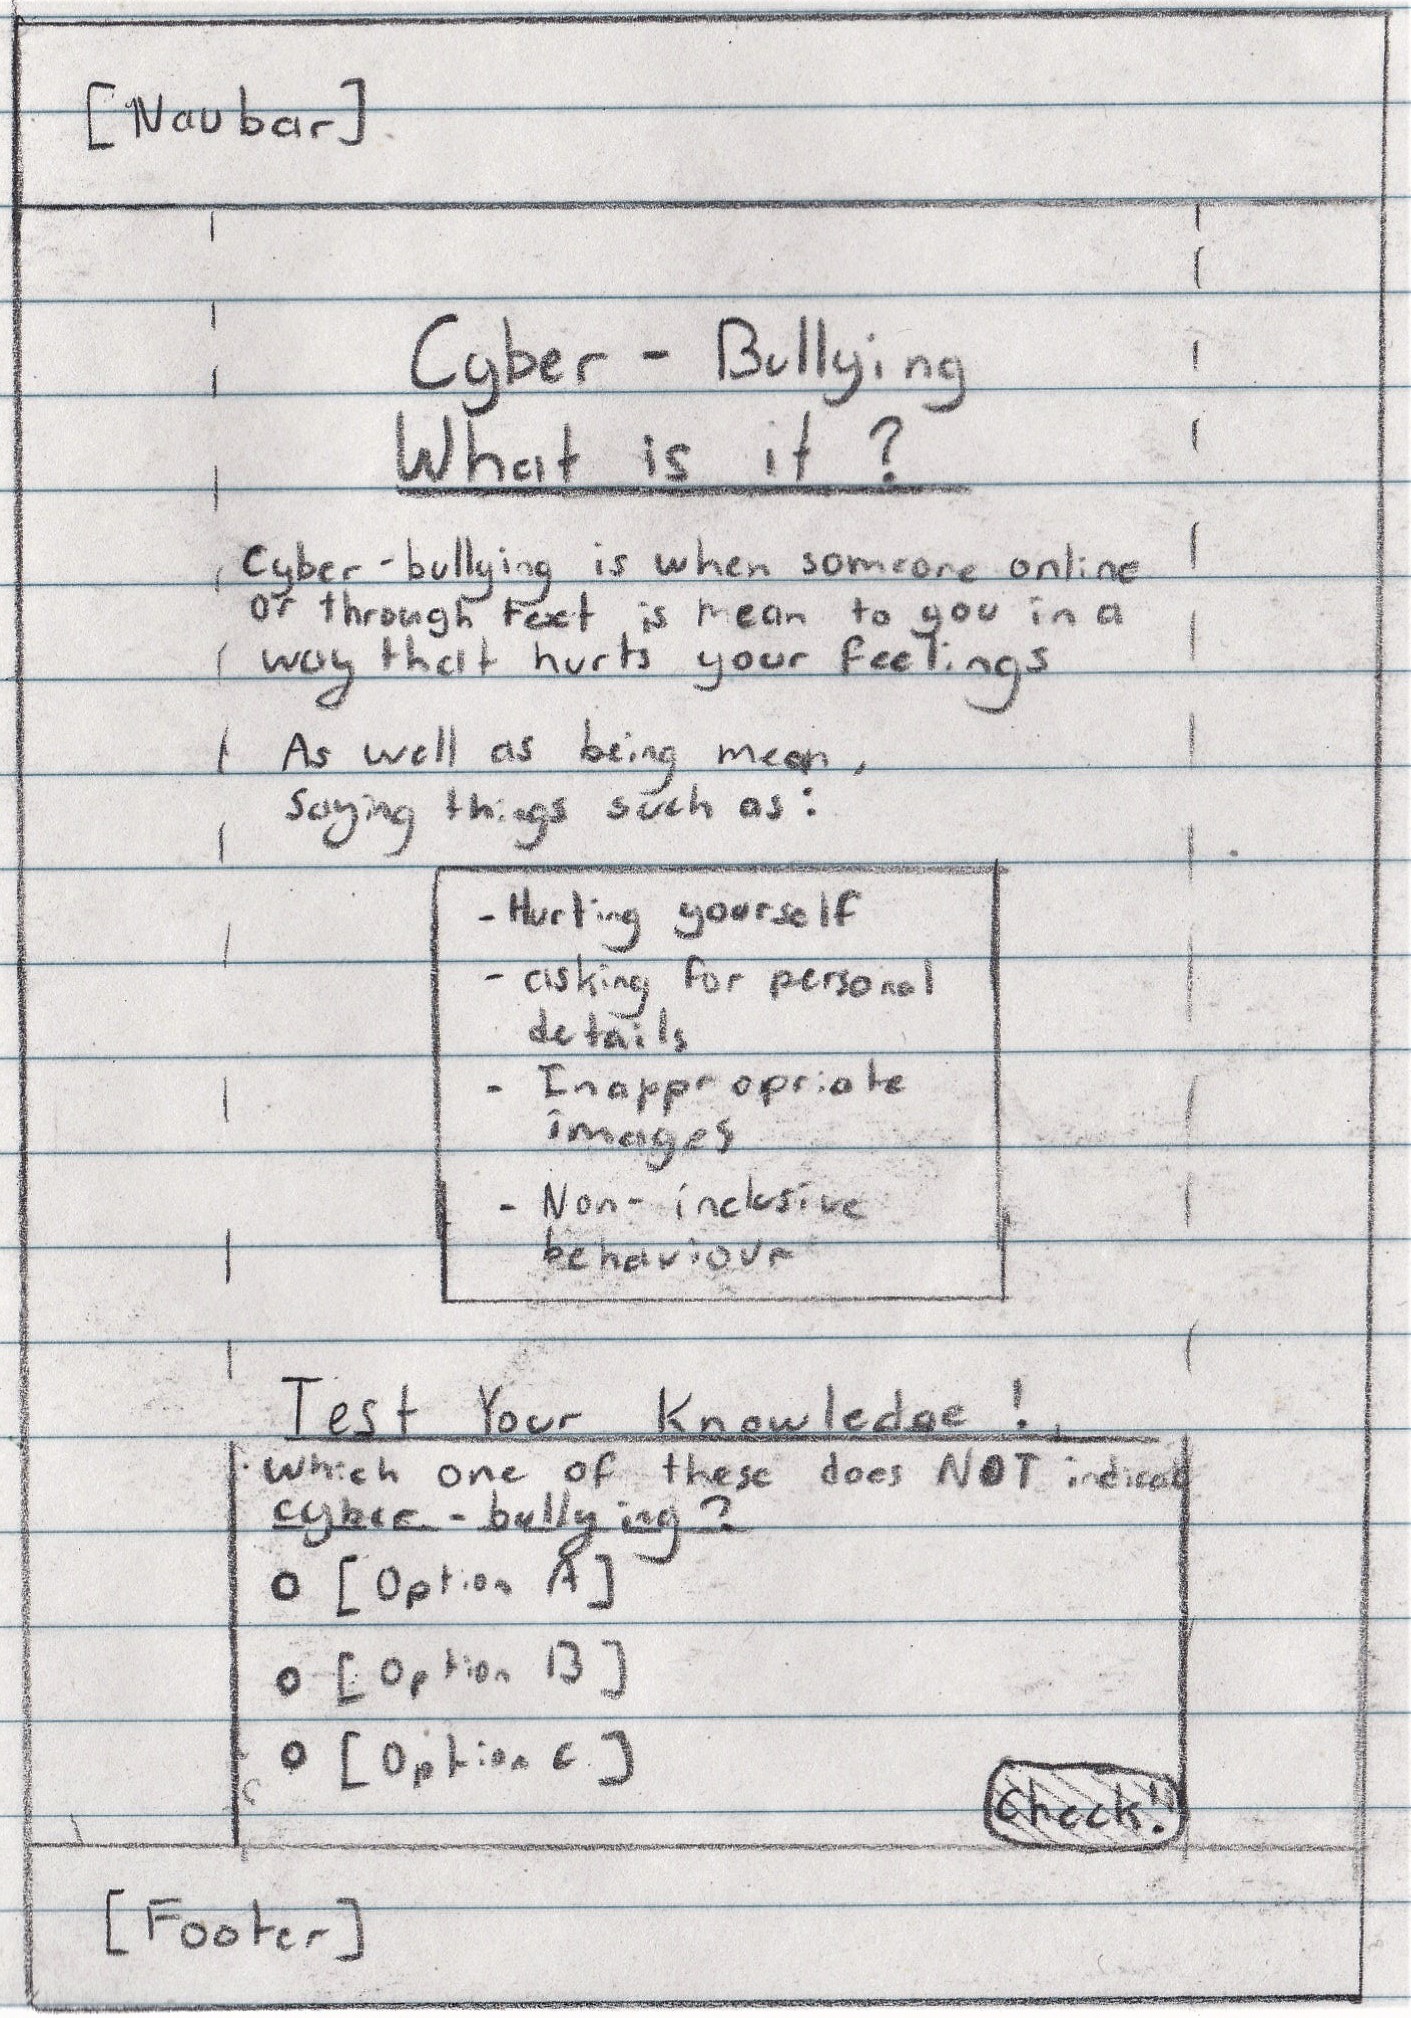 [Navbar]
Cyber - Bullying
What is it?
Cyber-bullying is when someone online
or through text is mean to you in a
way that hurts your feelings
As well as being mean,
saying things such as:
- Hurting yourself
- asking for personal
details
- Inappropriate
images
- Non-inclusive
behaviour
Test Your Knowledge!
Which one of these does NOT indicate
cyber-bullying?
[Option A]
[Option B]
[Option C]
Check!
[Footer]